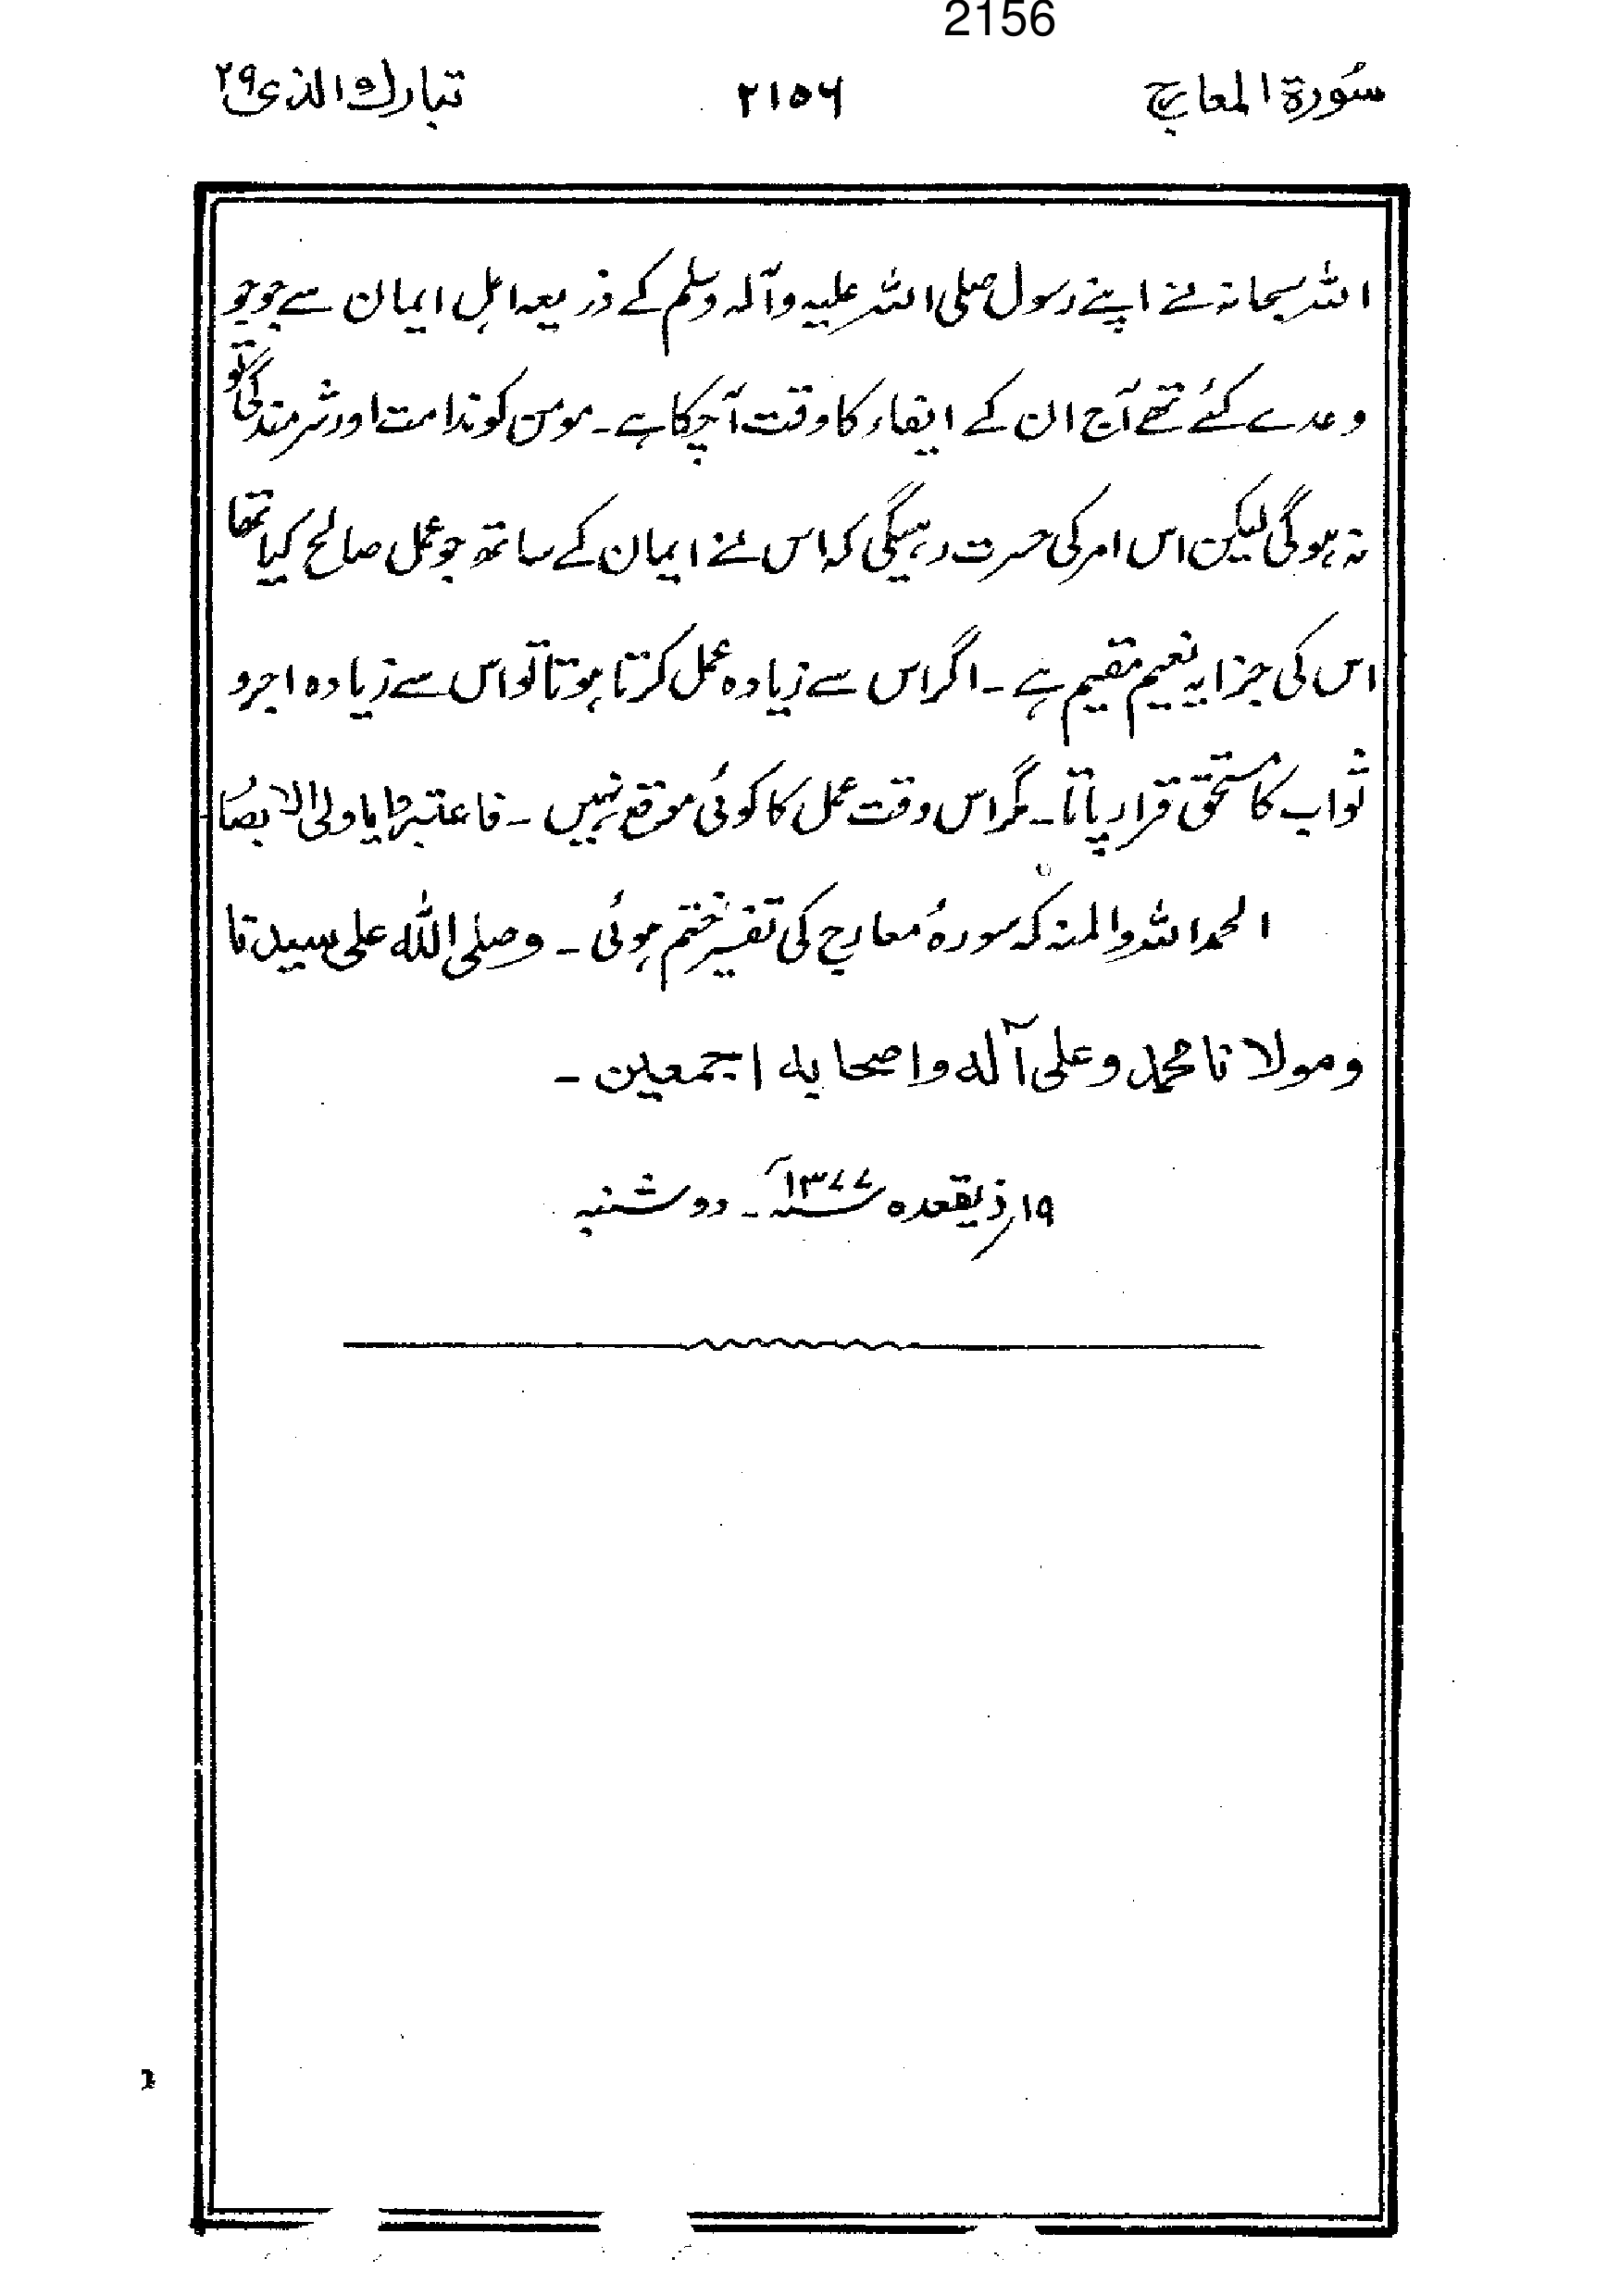 2156
سُورة المعارج ۲۱۵۶ تبارك الذى ۲۹
اللہ سبحانہ نے اپنے رسول صلی اللہ علیہ وآلہ وسلم کے ذریعہ اہل ایمان سے جو جو
وعدے کئے تھے آج ان کے ایفاء کا وقت آچکا ہے ۔ مومن کو ندامت اور شرمندگی تو
نہ ہوگی لیکن اس امر کی حسرت رہیگی کہ اس نے ایمان کے ساتھ جو عمل صالح کیا تھا
اس کی جزا یہ نعیم مقیم ہے ۔ اگر اس سے زیادہ عمل کرتا ہوتا تو اس سے زیادہ اجر و
ثواب کا مستحق قرار پاتا ۔ مگر اس وقت عمل کا کوئی موقع نہیں ۔ فاعتبروا یا اولی الابصار
الحمد اللہ والمنہ کہ سورہٴ معارج کی تفسیر ختم ہوئی ۔ وصلی اللہ علی سیدنا
ومولانا محمد وعلی آله واصحابه اجمعین ۔
۱۹؍ ذیقعدہ سنہ ۱۳۷۷ ۔ دوشنبہ